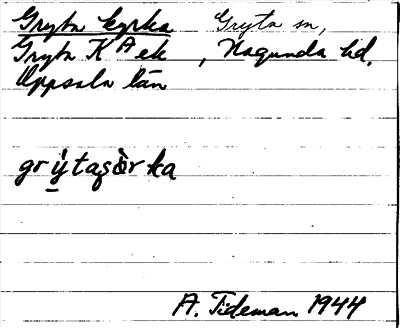 Gryta kyrka Gryta sn,
Gryta K A ek , Hagunda hd,
Uppsala län
grỳtaşòrka
A. Tideman 1944